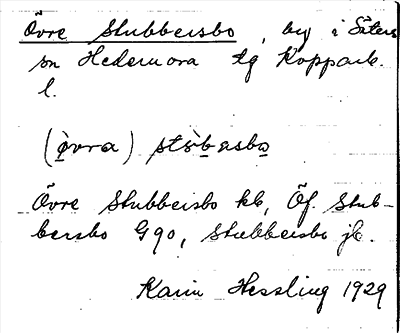 Övre Stubbersbo, by i Säters
sn Hedemora tg Kopparb.
l.
(övra) stùbasbo
Övre Stubbersbo kb, Öf Stub-
bersbo G90, Stubbersbo jb.
Karin Hessling 1929